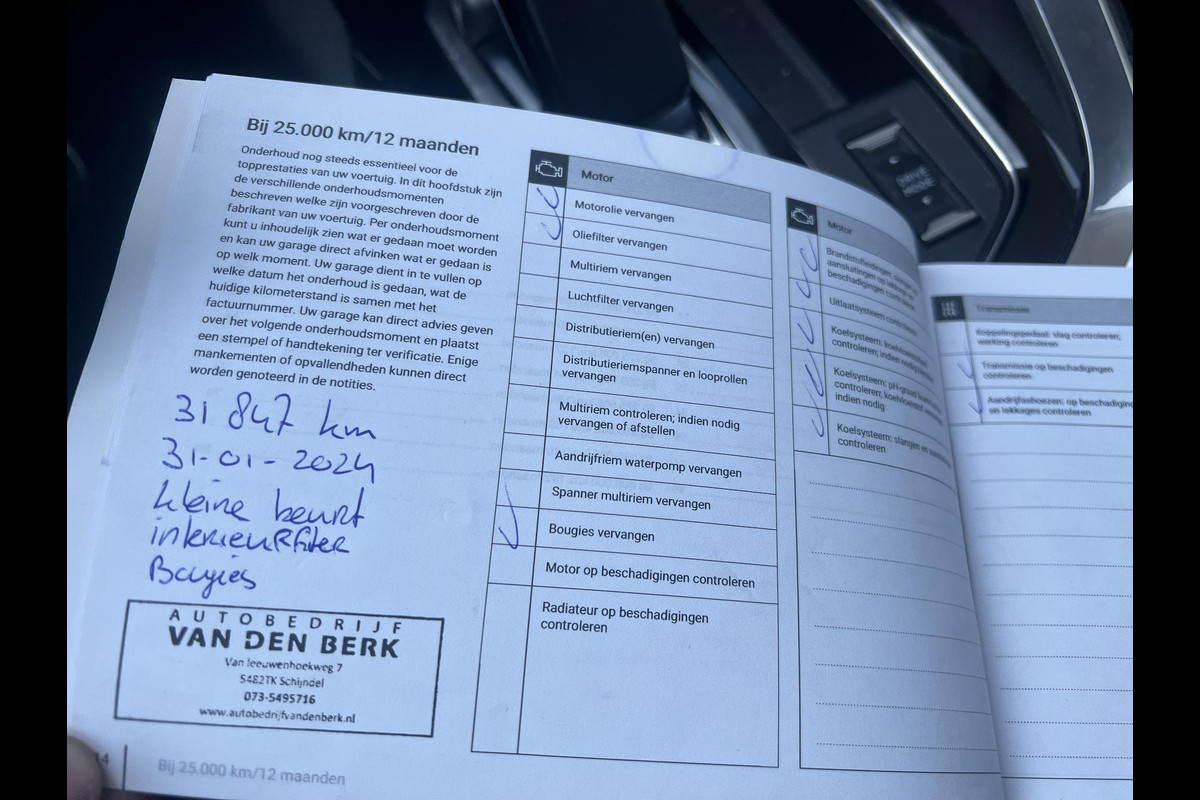 Bij 25.000 km/12 maanden
Onderhoud nog steeds essentieel voor de
topprestaties van uw voertuig. In dit hoofdstuk zijn
de verschillende onderhoudsmomenten
beschreven welke zijn voorgeschreven door de
fabrikant van uw voertuig. Per onderhoudsmoment
kunt u inhoudelijk zien wat er gedaan moet worden
en kan uw garage direct afvinken wat er gedaan is
op welk moment. Uw garage dient in te vullen op
welke datum het onderhoud is gedaan, wat de
huidige kilometerstand is samen met het
factuurnummer. Uw garage kan direct advies geven
over het volgende onderhoudsmoment en plaatst
een stempel of handtekening ter verificatie. Enige
mankementen of opvallendheden kunnen direct
worden genoteerd in de notities.
31 847 km
31-01-2024
kleine beurt
interieurfilter
Bougies
AUTOBEDRIJF
VAN DEN BERK
Van leeuwenhoekweg 7
5482TK Schijndel
073-5495716
www.autobedrijfvandenberk.nl
4
Bij 25.000 km/12 maanden
Motor
Motorolie vervangen
Oliefilter vervangen
Multiriem vervangen
Luchtfilter vervangen
Distributieriem(en) vervangen
Distributieriemspanner en looprollen
vervangen
Multiriem controleren; indien nodig
vervangen of afstellen
Aandrijfriem waterpomp vervangen
Spanner multiriem vervangen
Bougies vervangen
Motor op beschadigingen controleren
Radiateur op beschadigingen
controleren
Motor
Brandstofleidingen,
aansluitingen op
beschadigingen
Uitlaatsysteem
Koelsysteem:
controleren; indien nodig
Koelsysteem: pH-graad
controleren; koelvloeistof
indien nodig
Koelsysteem: slangen en
controleren
Transmissie
Koppelingspedaal: slag controleren;
werking controleren
Transmissie op beschadigingen
controleren
Aandrijfashoezen: op
en lekkages controleren
DRIVE
MODE